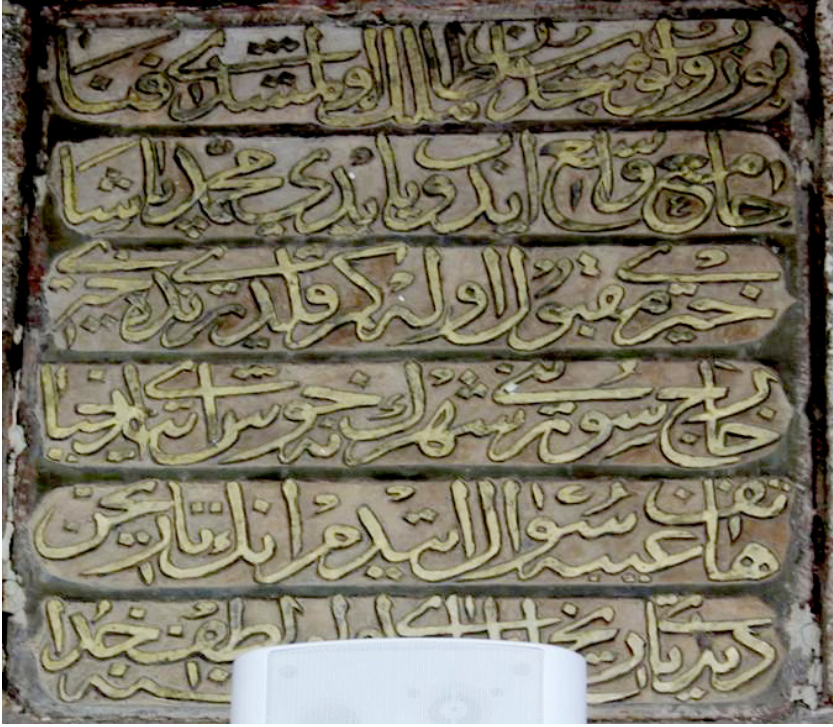 بوزولوب مسجد اولمشدی فنا
جامع واسع ایدوب یاپدی محمد پاشا
خیری مقبول اوله كم قلدی زیاده خیری
خارج سورینی شهرك نه خوش ایتدی احیا
هاتف غیبه سؤال ایتدم انك تاریخن
دیدی تاریخ لطف خدا
سنه